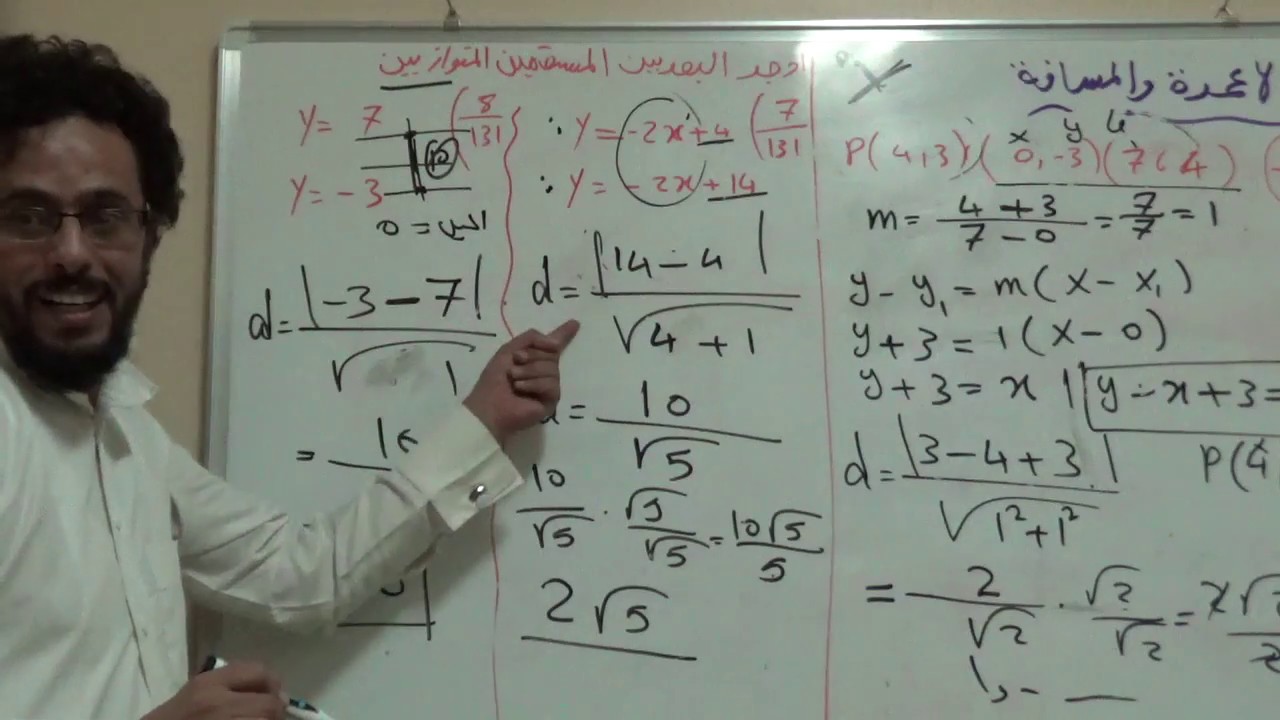 اوجد البعد بين المستقيمين المتوازيين
y = 7 (8/131
y = -3
10
الميل = 0
d = |-3 - 7| / √ 1
= 10
∴ y = -2x + 4 (7/131
∴ y = -2x + 14
d = |14 - 4| / √4 + 1
= 10/√5
10/√5 · √5/√5 = 10√5/5
2√5
الاعمدة والمسافة
x y
P(4,3), (0,-3)(7,4)
m = 4 + 3 / 7 - 0 = 7/7 = 1
y - y₁ = m(x - x₁)
y + 3 = 1(x - 0)
y + 3 = x | y - x + 3 =
d = |3 - 4 + 3| / √1² + 1²
P(4
= 2/√2 · √2/√2 = 2√2/2